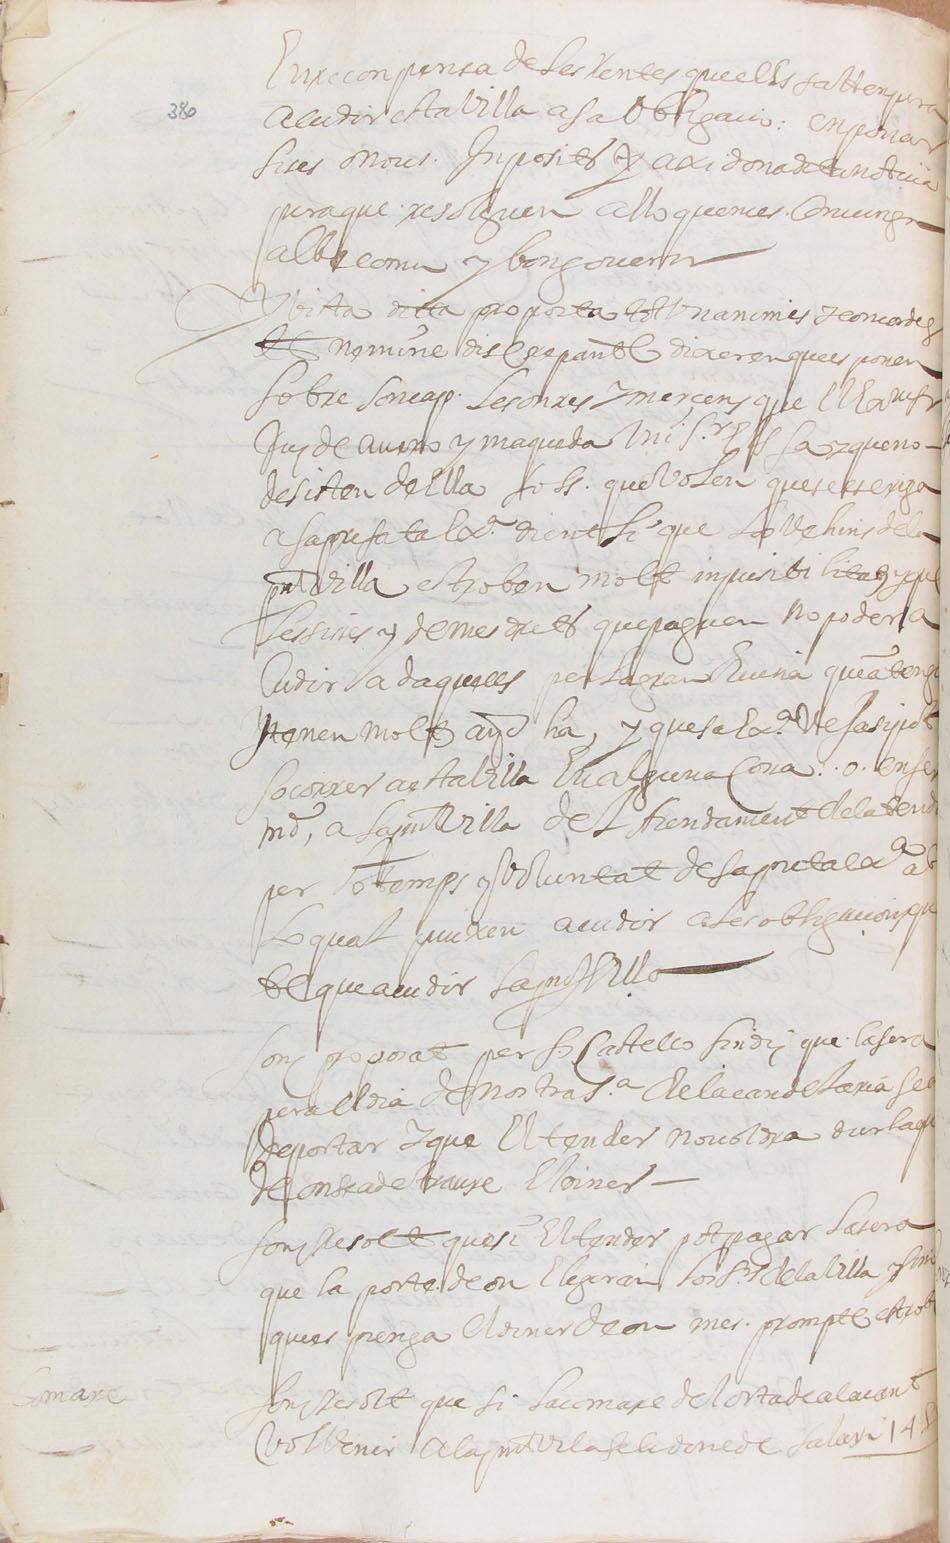 380
En recompensa de les rentes que ells
acudir esta Villa a sa obligacio: en posar
sises o nous Inposits y axi dona de ta noticia
pera que resolguen allo que mes convinga
al be comu y bon govern
Y vista dita proposta tots unanimis y concordes
et nemine discrepante dixeren que es posen
sobre son cap les onres y merçens que
de aueiro y maqueda
desisten de Ella que volen que se escriga
a sa prefata Exª. dient li que lo Vehins de la
pnt Villa estroben molt inposibilitats y que
les sises y demes drets que paguen no poder a
Cudir a daquells per la gran Ruina que
y tenen molts anys ha, y que sa Exª.
socorrer a esta Villa En alguna Cosa: o. en fer
md, a la pnt Villa del Arendament de la tenda
per lo temps y voluntat de sa prefata exª ab
lo qual puixen acudir a les obligacions que
te que acudir la pnt Villa
fonj proposat per Castello Sindi que la sera
pera el dia de nostra Sª. de la candelaria se a
de portar y que El tender no voldra durla que
de on sea de traure El diner
fonj Resolt que si El tender pot pagar la sera
que la porte de on Elegiran los Srs de la Villa y sino
que es prenga El diner de on mes prompte estrobe
Comare
fonj Resolt que si la comare del orta de alacant
vol Venir a la pnt Vila se li done de salari 14 L